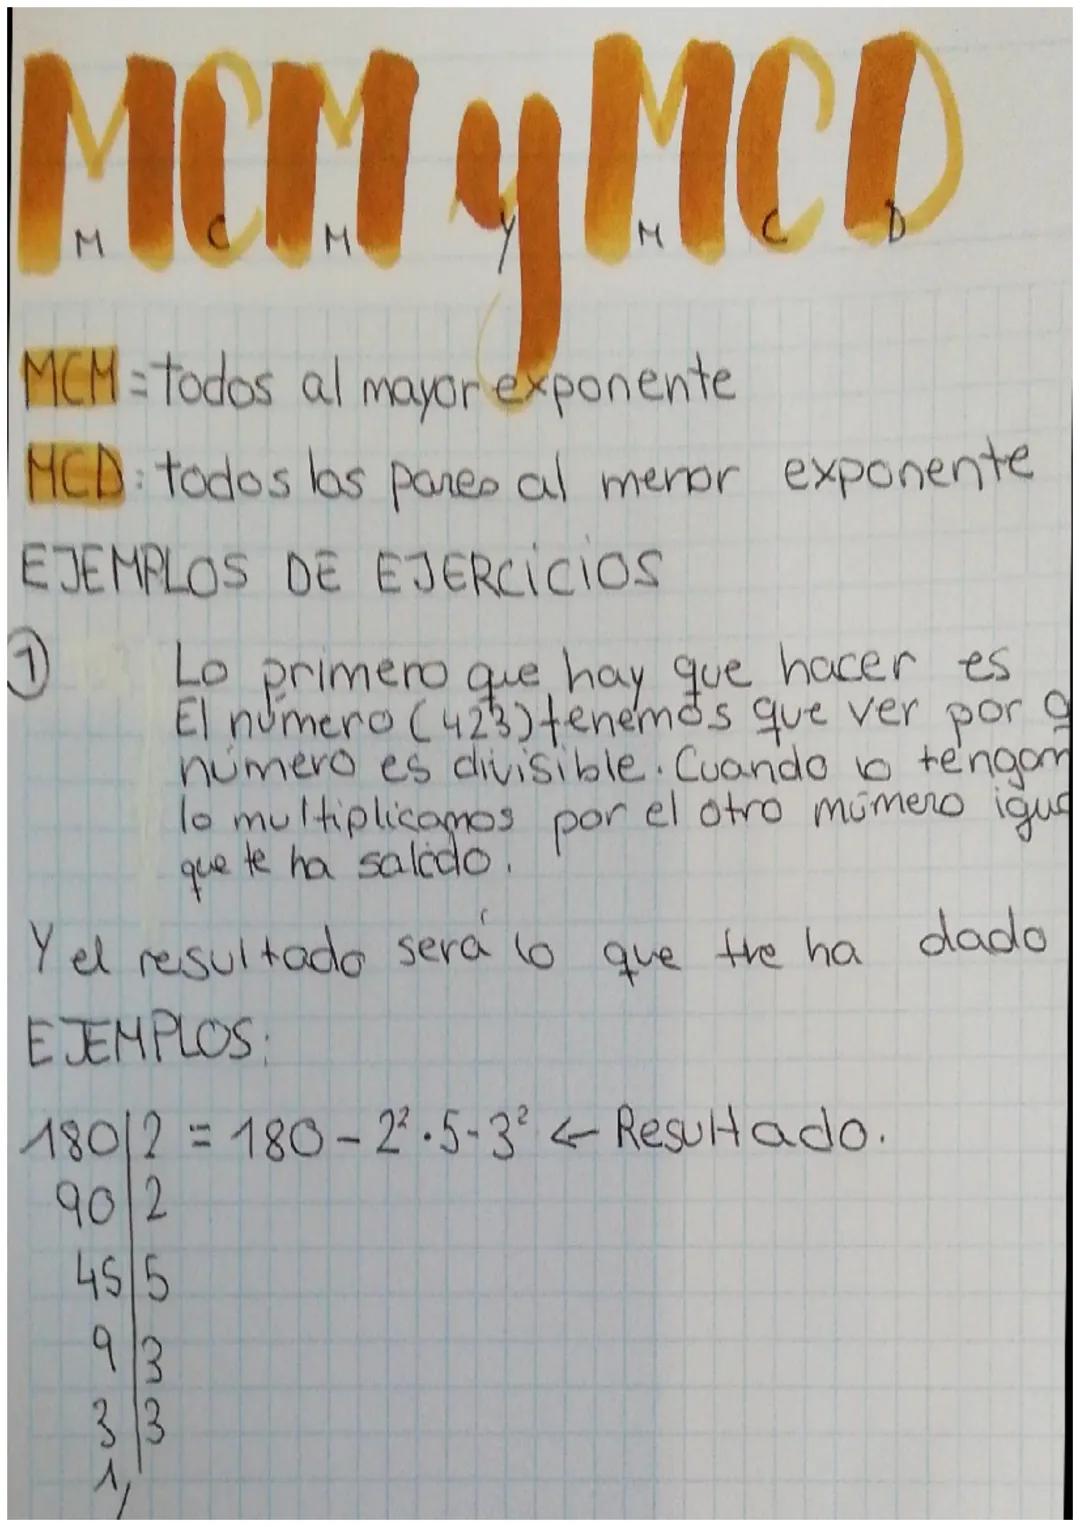 MCM y MCD
M C M Y M C D
MCM=todos al mayor exponente
MCD: todos los pares al menor exponente
EJEMPLOS DE EJERCICIOS
1 Lo primero que hay que hacer es
El número (423) tenemos que ver por q
número es divisible. Cuando lo tengam
lo multiplicamos por el otro número igua
que te ha salido.
Y el resultado será lo que te ha dado
EJEMPLOS:
180|2 = 180-2²·5-3² ← Resultado.
90|2
45|5
9|3
3|3
1